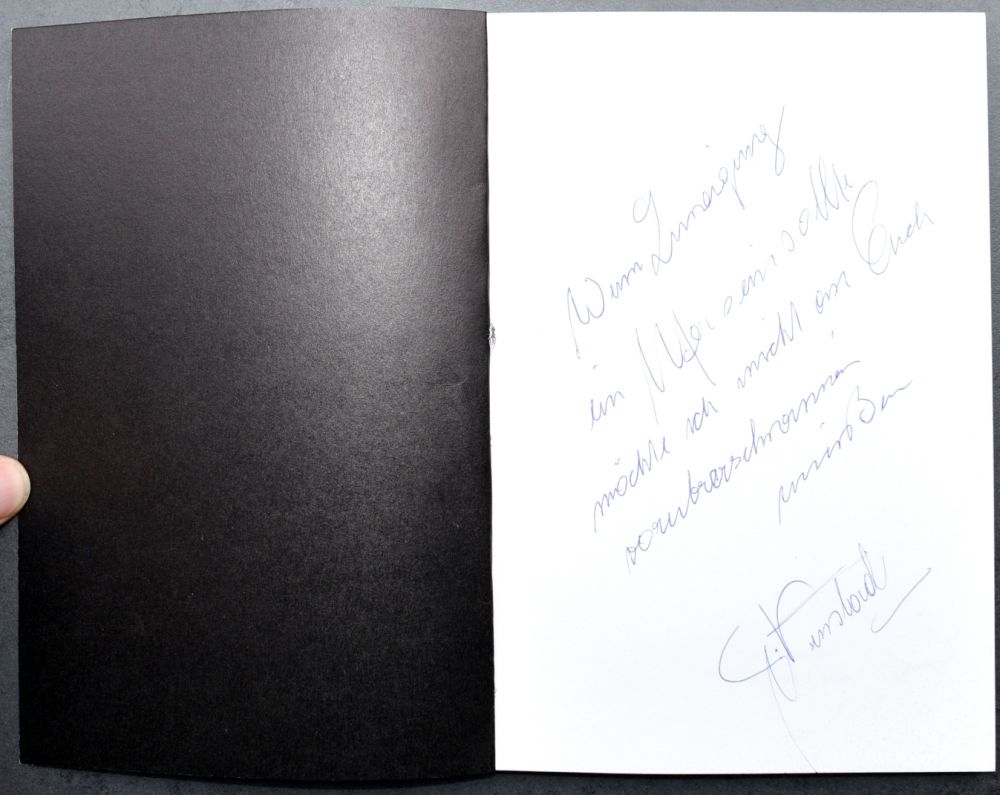 Wenn Zuneigung
ein Meer sein sollte
möchte ich nicht an Euch
vorüberschwimmen
müssen